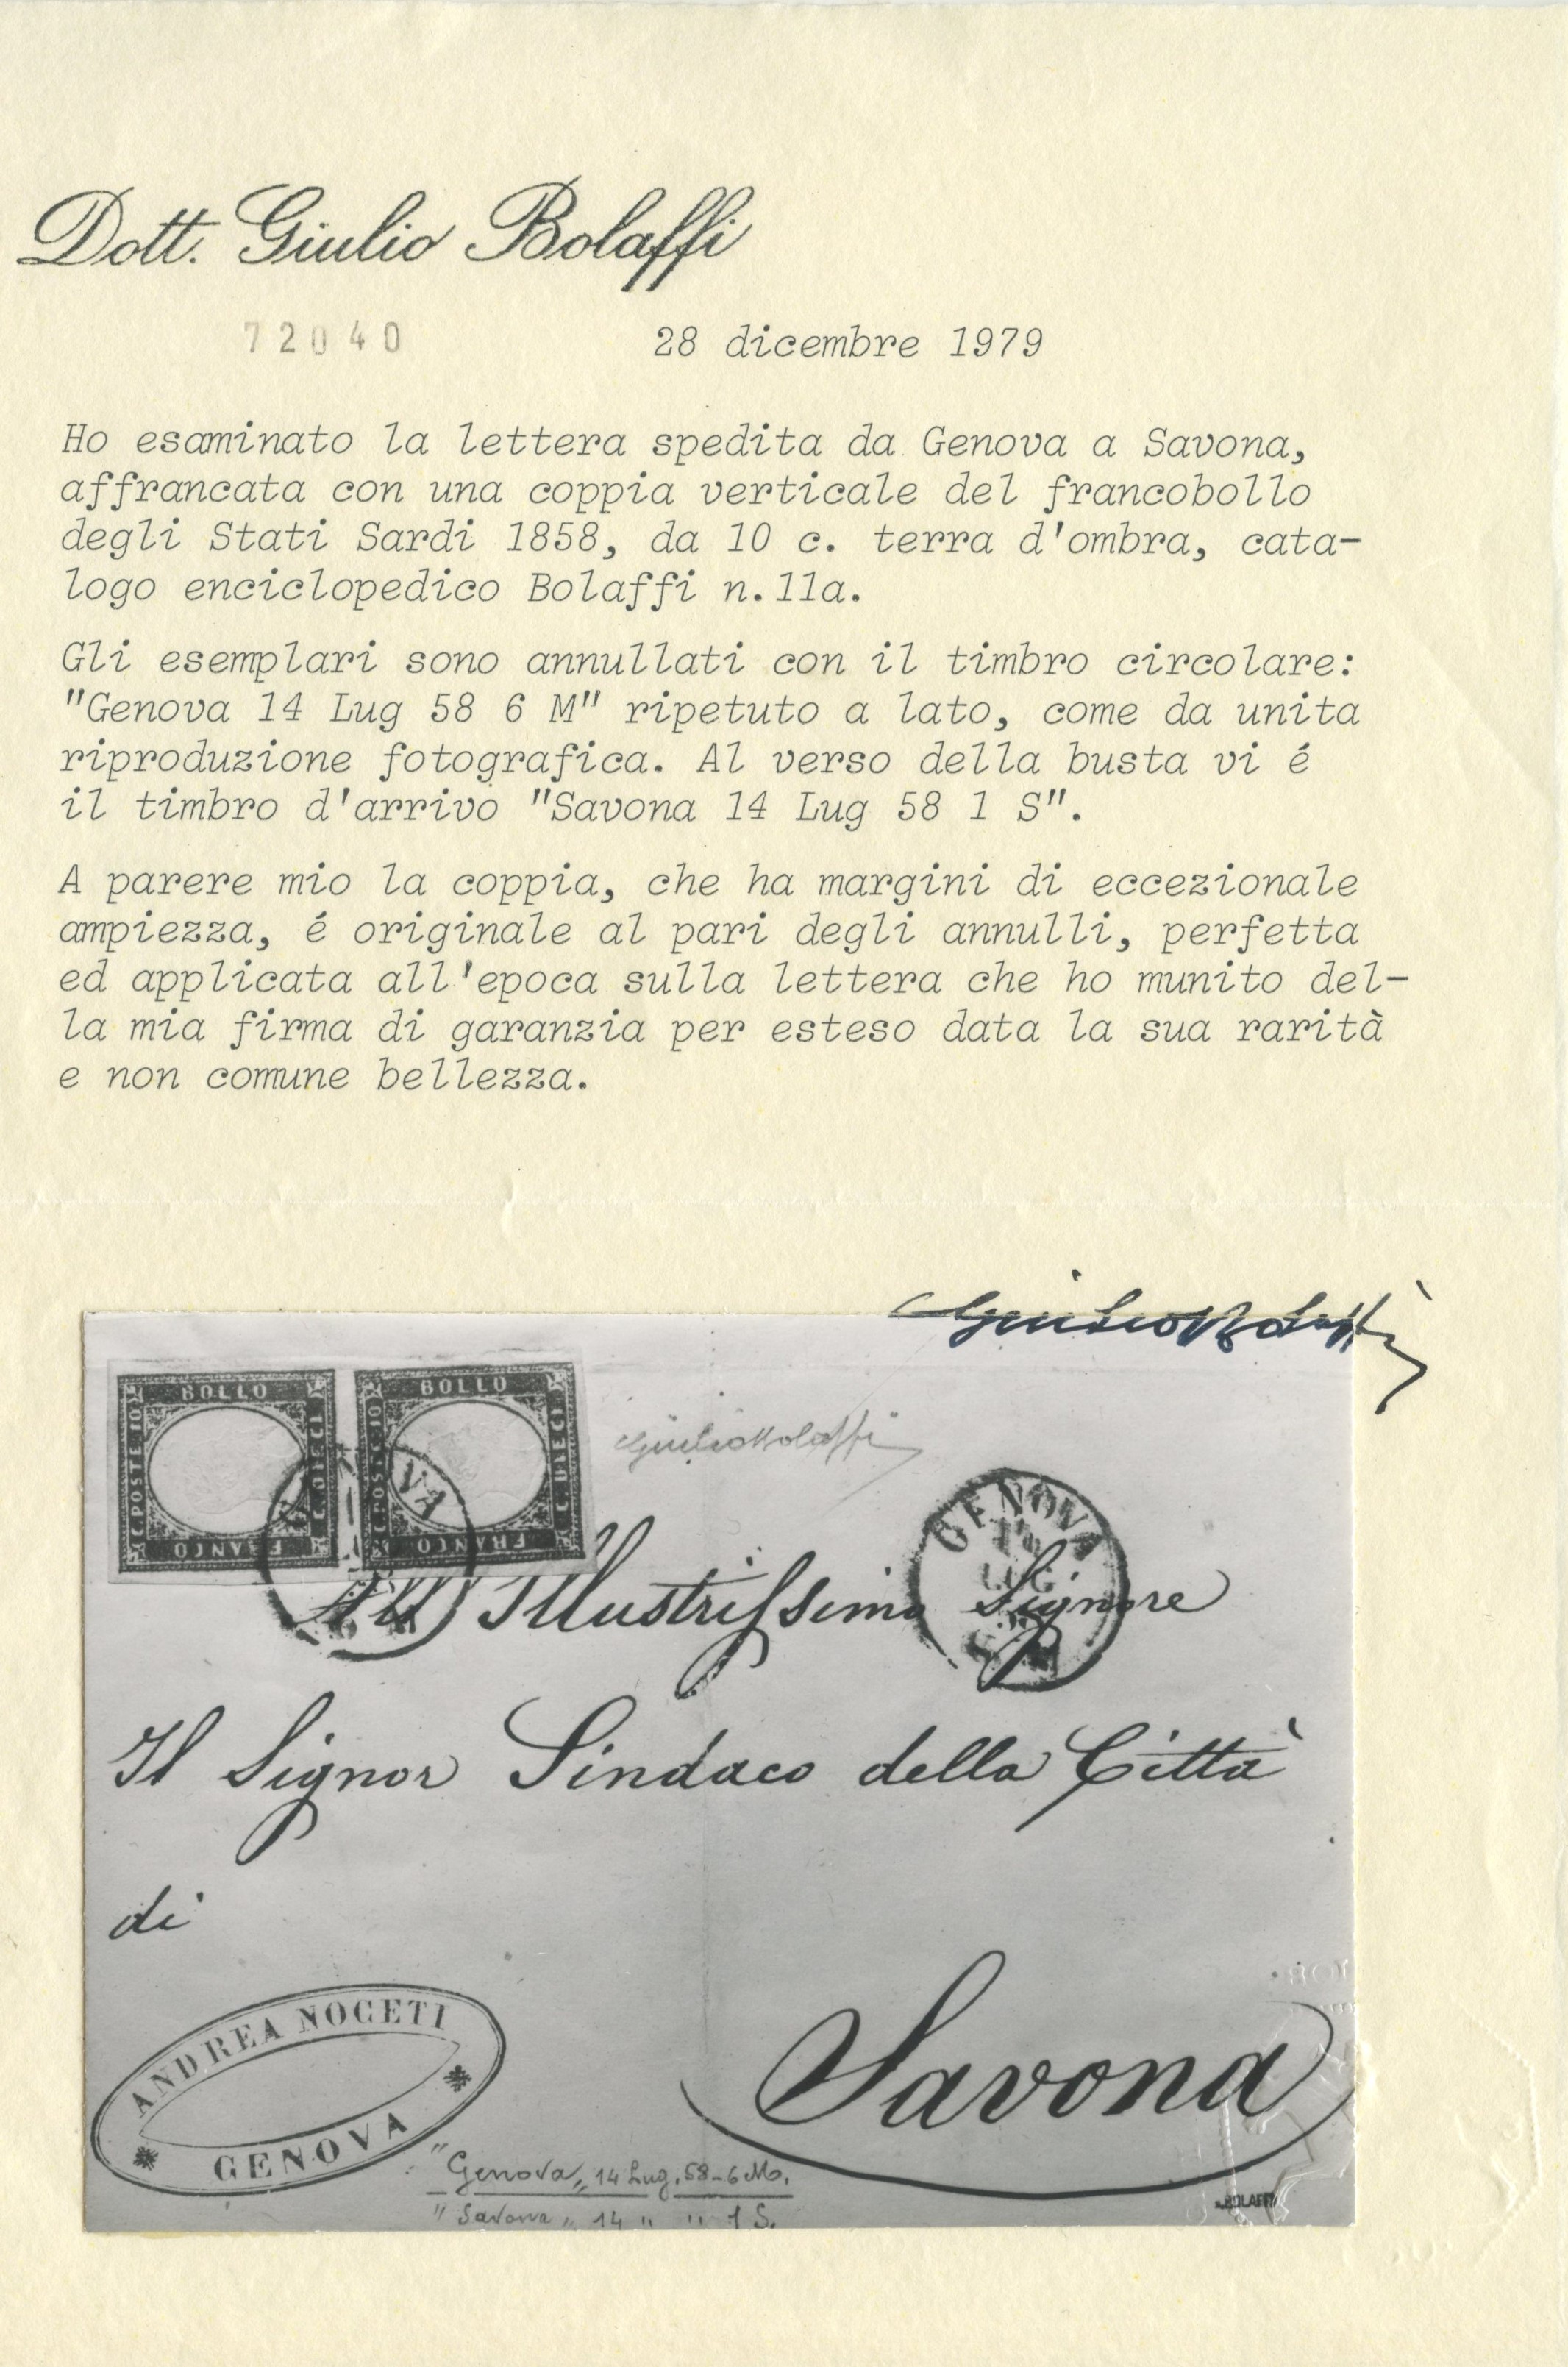 Dott. Giulio Bolaffi
72040 28 dicembre 1979
Ho esaminato la lettera spedita da Genova a Savona,
affrancata con una coppia verticale del francobollo
degli Stati Sardi 1858, da 10 c. terra d'ombra, cata-
logo enciclopedico Bolaffi n.11a.
Gli esemplari sono annullati con il timbro circolare:
"Genova 14 Lug 58 6 M" ripetuto a lato, come da unita
riproduzione fotografica. Al verso della busta vi é
il timbro d'arrivo "Savona 14 Lug 58 1 S".
A parere mio la coppia, che ha margini di eccezionale
ampiezza, é originale al pari degli annulli, perfetta
ed applicata all'epoca sulla lettera che ho munito del-
la mia firma di garanzia per esteso data la sua rarità
e non comune bellezza.
Giulio Bolaffi
BOLLO BOLLO
C. POSTE 10 C. DIECI C. POSTE 10 C. DIECI
FRANCO FRANCO
Giulio Bolaffi
GENOVA
LUG
All Illustrissimo Signore
Il Signor Sindaco della Città
di
Savona
ANDREA NOCETI
GENOVA
"Genova" 14 Lug. 58-6 M.
"Savona" 14 " " 1 S.
BOLAFFI